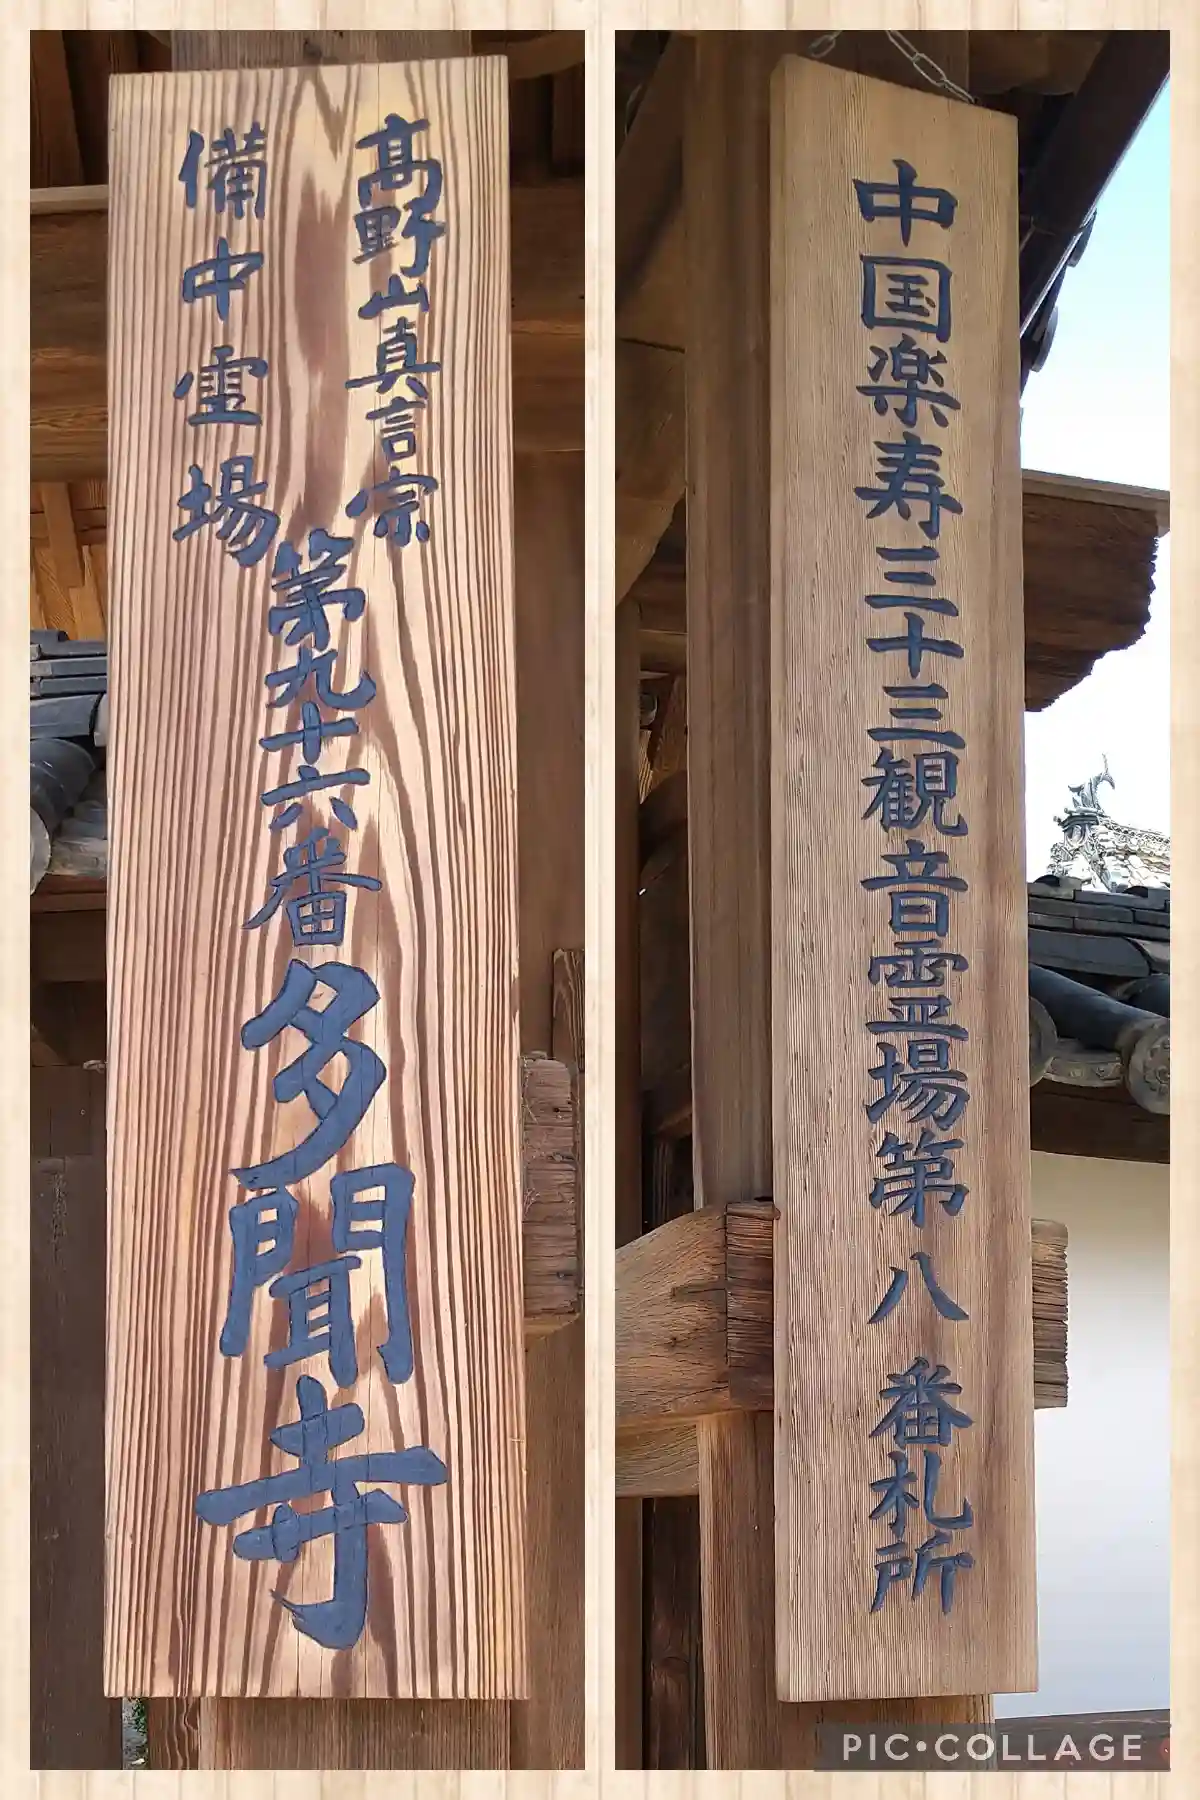 高野山真言宗
備中霊場
第九十六番多聞寺
中国楽寿三十三観音霊場第八番札所
PIC•COLLAGE